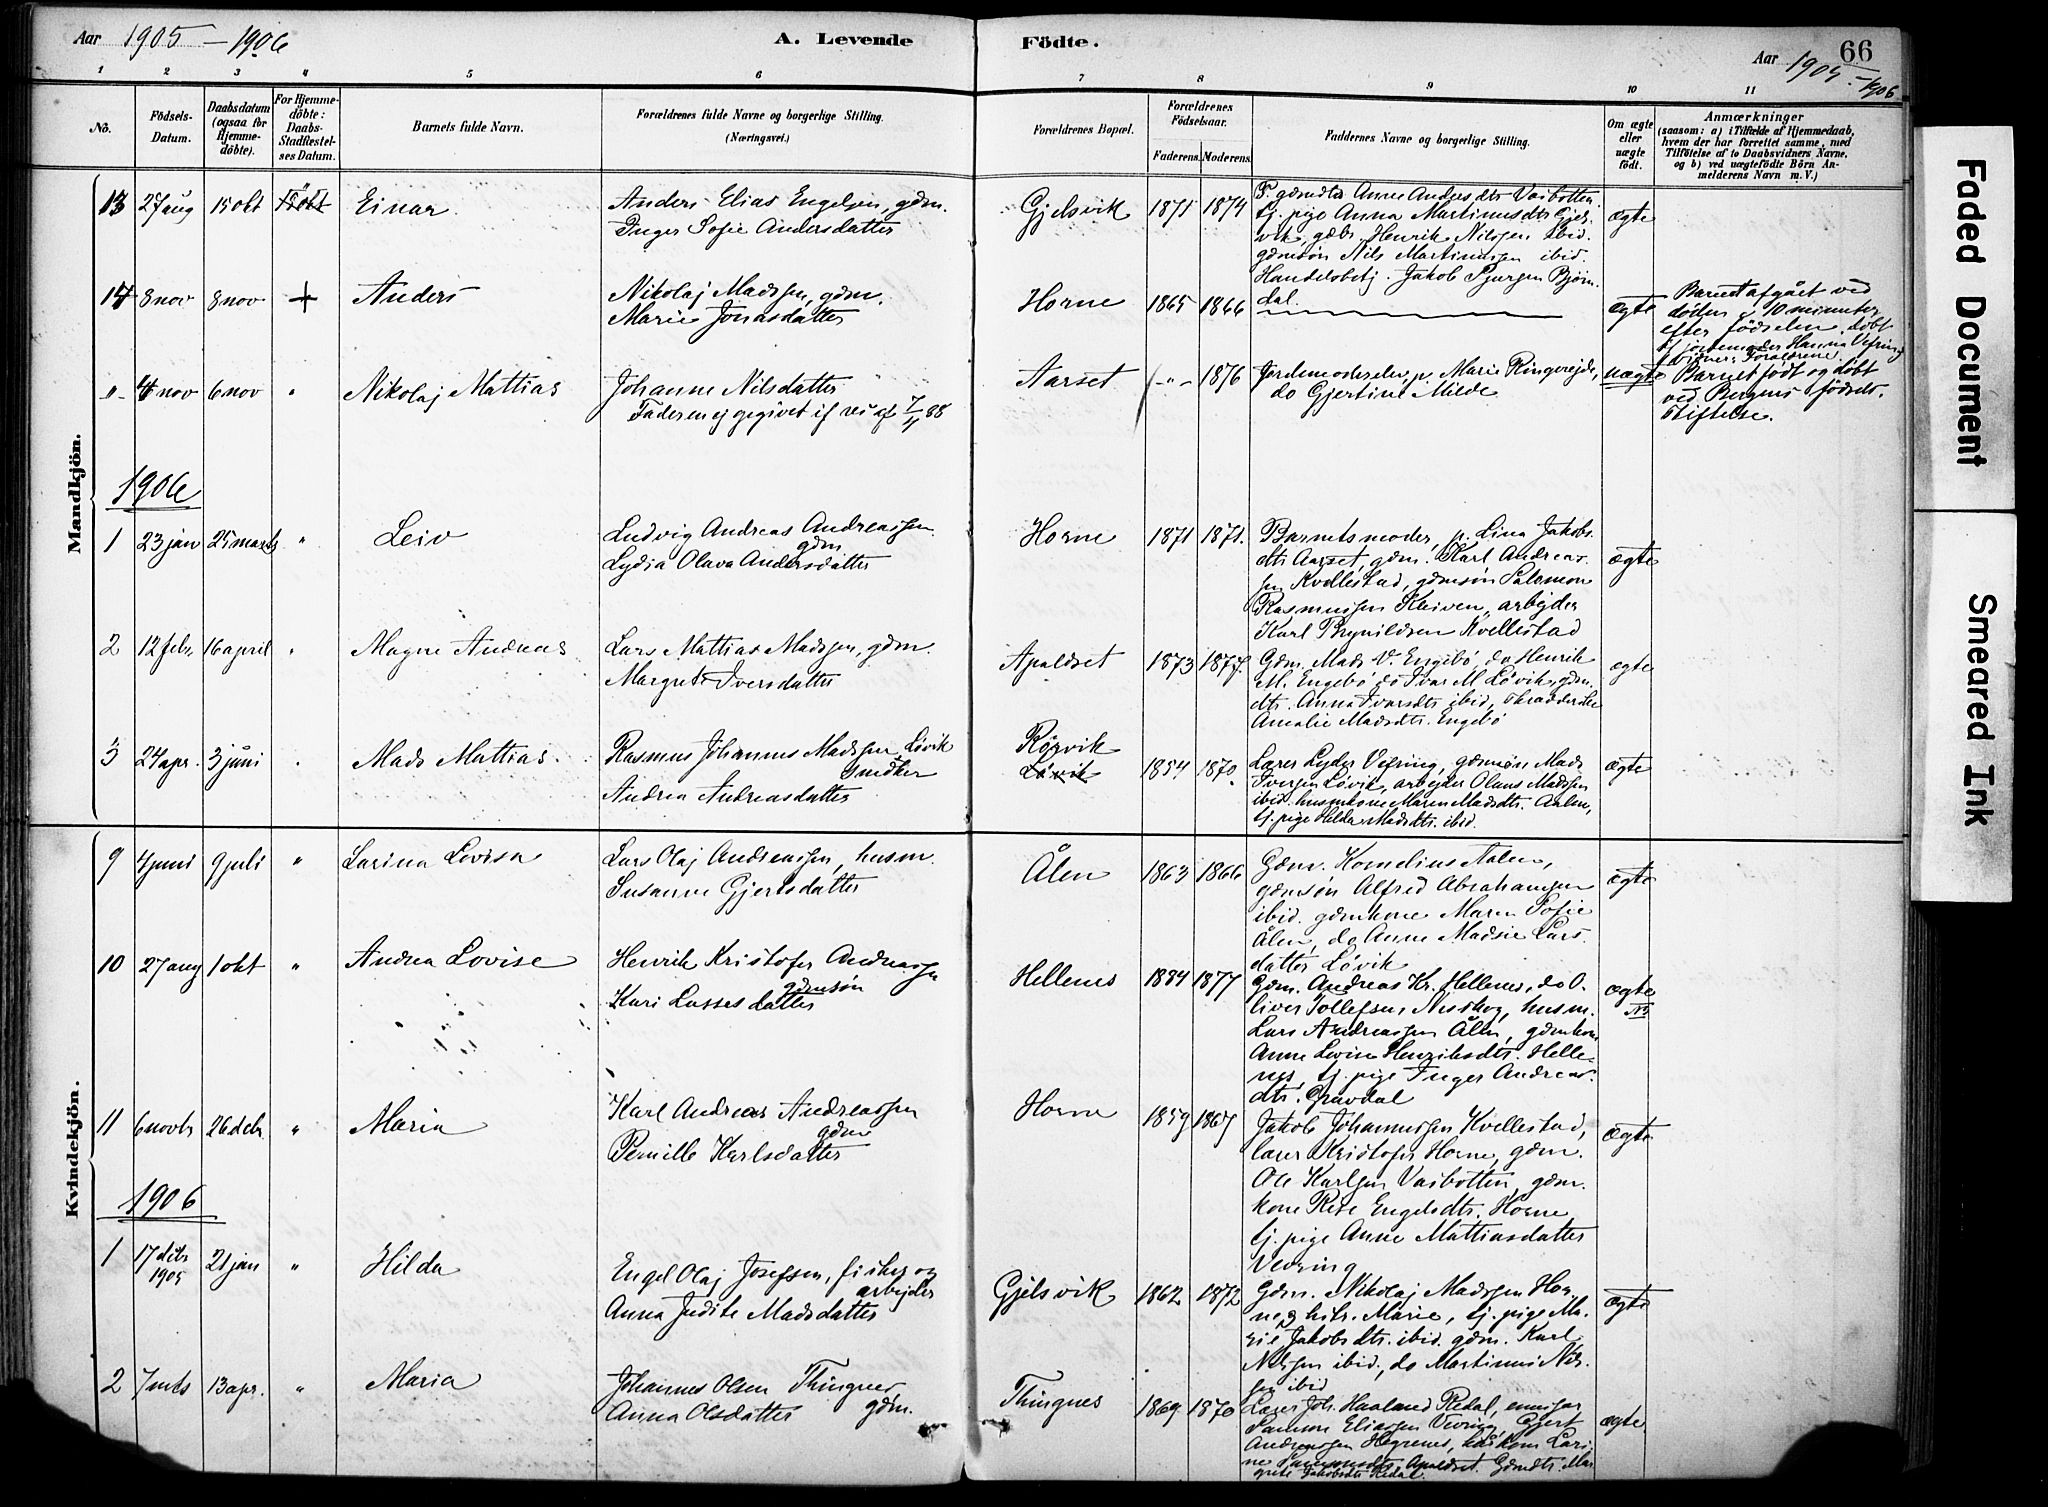 Aar 1905 – 1906
A. Levende Födte.
Aar 1905 – 1906
66
1 2 3 4 5 6 7 8 9 10 11
No.
Födsels-Datum.
Daabsdatum (ogsaa for Hjemme-döbte).
For Hjemme-döbte: Daabs-Stadfæstel-ses Datum.
Barnets fulde Navn.
Forældrenes fulde Navne og borgerlige Stilling. (Næringsvei.)
Forældrenes Bopæl.
Forældrenes Födselsaar.
Faderens. Moderens.
Faddernes Navne og borgerlige Stilling.
Om ægte eller uægte födt.
Anmærkninger
(saasom: a) i Tilfælde af Hjemmedaab,
hvem der har forrettet samme, med
Tilföielse af to Daabsvidners Navne,
og b) ved uægtefödte Börn An-
melderens Navn m. V.)
Mandkjön.
13 27 aug 15 okt 15 okt Einar
Anders Elias Engelsen, gdm.
Inger Sofie Andersdatter
Gjelsvik 1871 1874
F. gdmdtr Anne Andersdtr Vasbotten
tj. pige Anna Martinusdtr Gjels-
vik, gdbr. Henrik Nilssen ibid.
gdmsøn Nils Martinussen ibid.
Handelsbetj. Jakob Bjørn-
dal.
ægte
14 8 nov 8 nov + Anders
Nikolaj Madssen, gdm.
Marie Jonasdatter
Horne 1865 1866
ægte
Barnet afgået ved
døden 10 minuter
efter fødselen, døbt
af jordemoder Hanna Vefring
Vidner: Forældrene.
" 4 nov 6 nov " Nikolaj Mattias
Johanne Nilsdatter
Faderen ej opgivet if res af 7/4 88
Aarset – " – 1876
Jordemoderelev p. Marie Ringerejde,
do Gjertine Milde
uægte
Barnet født og døbt
ved Bergens fødsels-
stiftelse.
1906
1 23 jan 25 marts " Leiv
Ludvig Andreas Andreassen
gdm
Lydia Olava Andersdatter
Horne 1871 1871.
Barnets moder, p. Lina Jakobs-
dtr Aarset, gdm. Karl Andreas-
sen Kvellestad, gdmsøn Salamon
Rasmussen Kleiven, arbejder
Karl Brynildsen Kvellestad
ægte
2 12 febr. 16 april " Magne Andreas
Lars Mattias Madssen, gdm.
Margrete Iversdatter
Apaldset 1873 1877.
Gdm. Mads V. Engebø, do Henrik
M. Engebø do Ivar M. Løvik, gdm-
dtr. Anna Ivarsdtr ibid,
Amalie Madsdtr. Engebø
ægte
3 24 apr. 3 juni " Mads Mattias
Rasmus Johannes Madssen Løvik
snedker
Andrea Andreasdatter
Rørvik
Løvik
1854 1870
Lærer Vefring, gdmsøn Mads
Iversen Løvik, arbejder Olaus Madssen
ibid. husmkone Maren Madsdtr. Aalen,
tj. pige Hilda Madsdtr. ibid.
ægte
Kvindekjön.
9 4 juni 9 juli " Larina Lovisa
Lars Olaj Andreassen, husm.
Susanne Gjertsdatter
Ålen 1863 1866
Gdm. Kornelius Aalen,
gdmsøn Alfred Abrahamsen
ibid. gdmkone Maren Sofie
Ålen, do Anne Madsie Lars-
datter Løvik
ægte
10 27 aug 1 okt " Andrea Lovise
Henrik Kristofer Andreassen
gdmsøn
Kari Lassesdatter
Hellenes 1884 1877
Gdm. Andreas Kr. Hellenes, do O-
liver Tollefsen Nesskog, husm.
Lars Andreassen Ålen, gdmkone
Anne Lovise Henriksdtr. Helle-
nes, tj. pige Inger Andreas-
dtr. Gravdal
ægte
11 6 novb 26 debr " Maria
Karl Andreas Andreassen
gdm
Pernille Karlsdatter
Horne 1859 1867
Jakob Johannessen Kvellestad,
lærer Kristofer Horne, gdm.
Ole Karlsen Vasbotten, gdm-
kone Rise Engelsdtr. Horne
tj. pige Anne Mattiasdatter
Vevring
ægte
1906
1 17 debr 1905 21 jan " Hilda
Engel Olaj Josefsen, fisker og
arbejder
Anna Judite Madsdatter
Gjelsvik 1862 1872
Gdm. Nikolaj Madssen Hor-
ne, & hstr. Marie, tj. pige Ma-
rie Jakobsdtr. ibid. gdm. Karl
Nilssen ibid., do Martinus Nils-
sen ibid
ægte
2 7 mts 13 apr. " Maria
Johannes Olsen Thingnes
gdm.
Anna Olsdatter
Thingnes 1869 1870
Lærer Joh. Haaland Redal,
Samson Eliassen Vevring, Gjert
Andreassen Hegrenes, Lari-
ne Apaldset. Gdmdtr. Mar-
grete Jakobsdtr Redal.
ægte
Faded Document
Smeared Ink